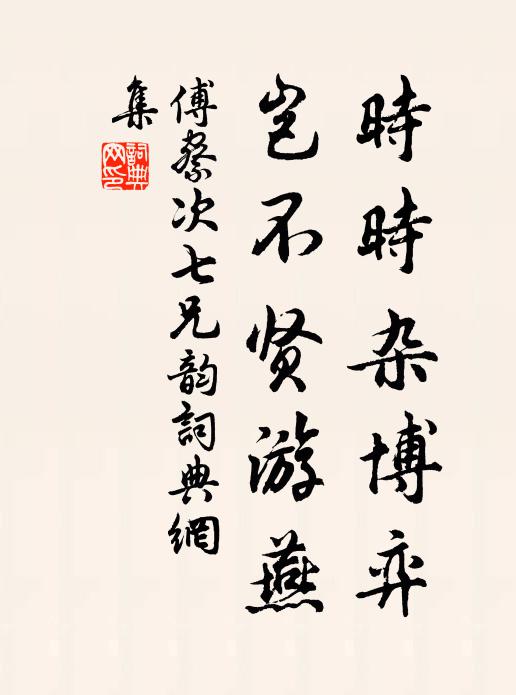 時時杂博弈
岂不贤游燕
傅察次七兄韵詞典網
集
詞典
网印